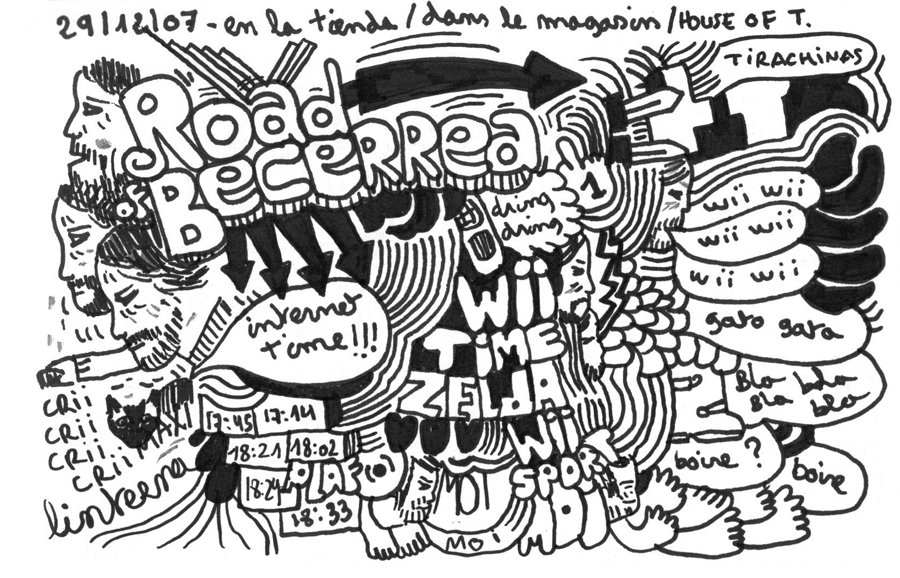 29/12/07 - en la tienda / dans le magasin / HOUSE OF T.
TIRACHINAS
Road
BECERREA
1
dring
dring
wii wii
wii wii
wii wii
internet
time!!!
WII
TiME
ZELDA
gato gata
Bla bla
Bla bla
CRii
CRii
CRii
CRii
MAXI
17:45 17:14
18:21 18:02
18:24
18:33
linterna
Wii
SPORT
MOi
MOi
boire ?
boire